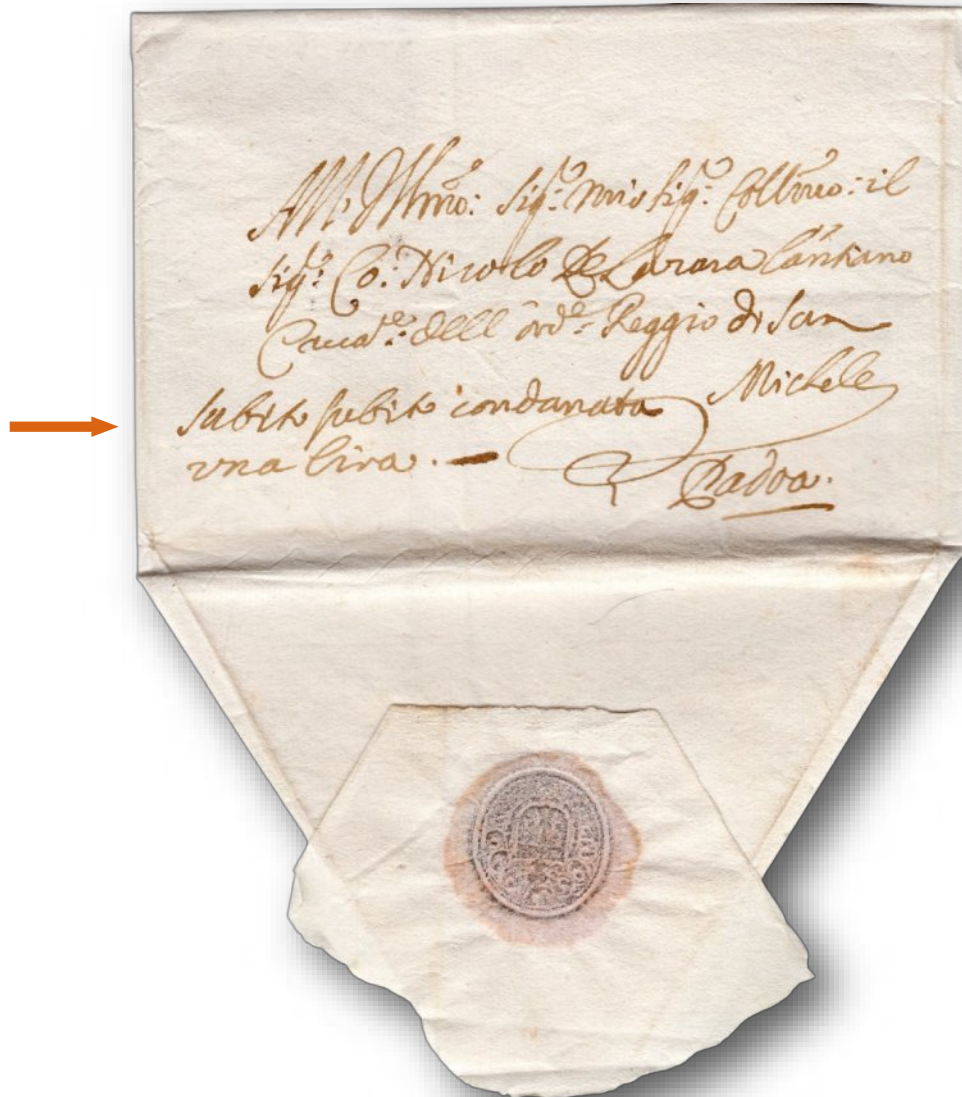 All Illmo: Sig:r mio Sig:r Coll:mo: il
Sig:r Co: Nicolo De Lazara
Cava:re dell ord:e Reggio di San
Michele
subito subito condanata
una lira. —
Padoa.